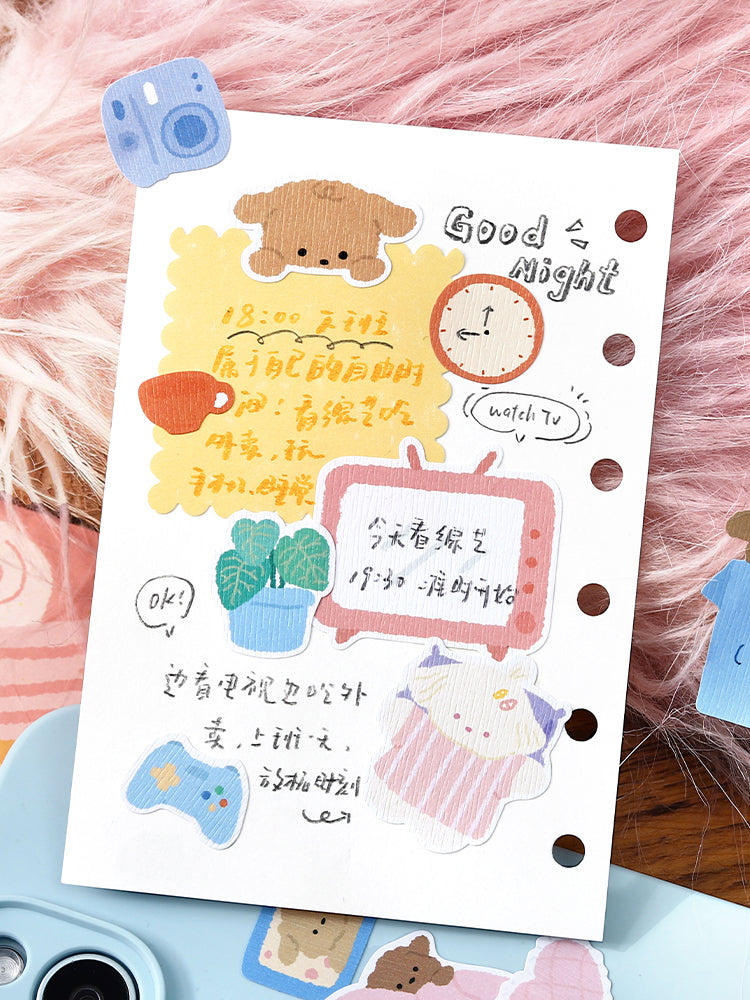 Good
Night
18:00 天下班
属于自己的自由时
间：看综艺吃
外卖，玩
手机、睡觉
watch TV
今天看综艺
19:30 准时开始
OK!
边看电视边吃外
卖，上班一天，
放松时刻